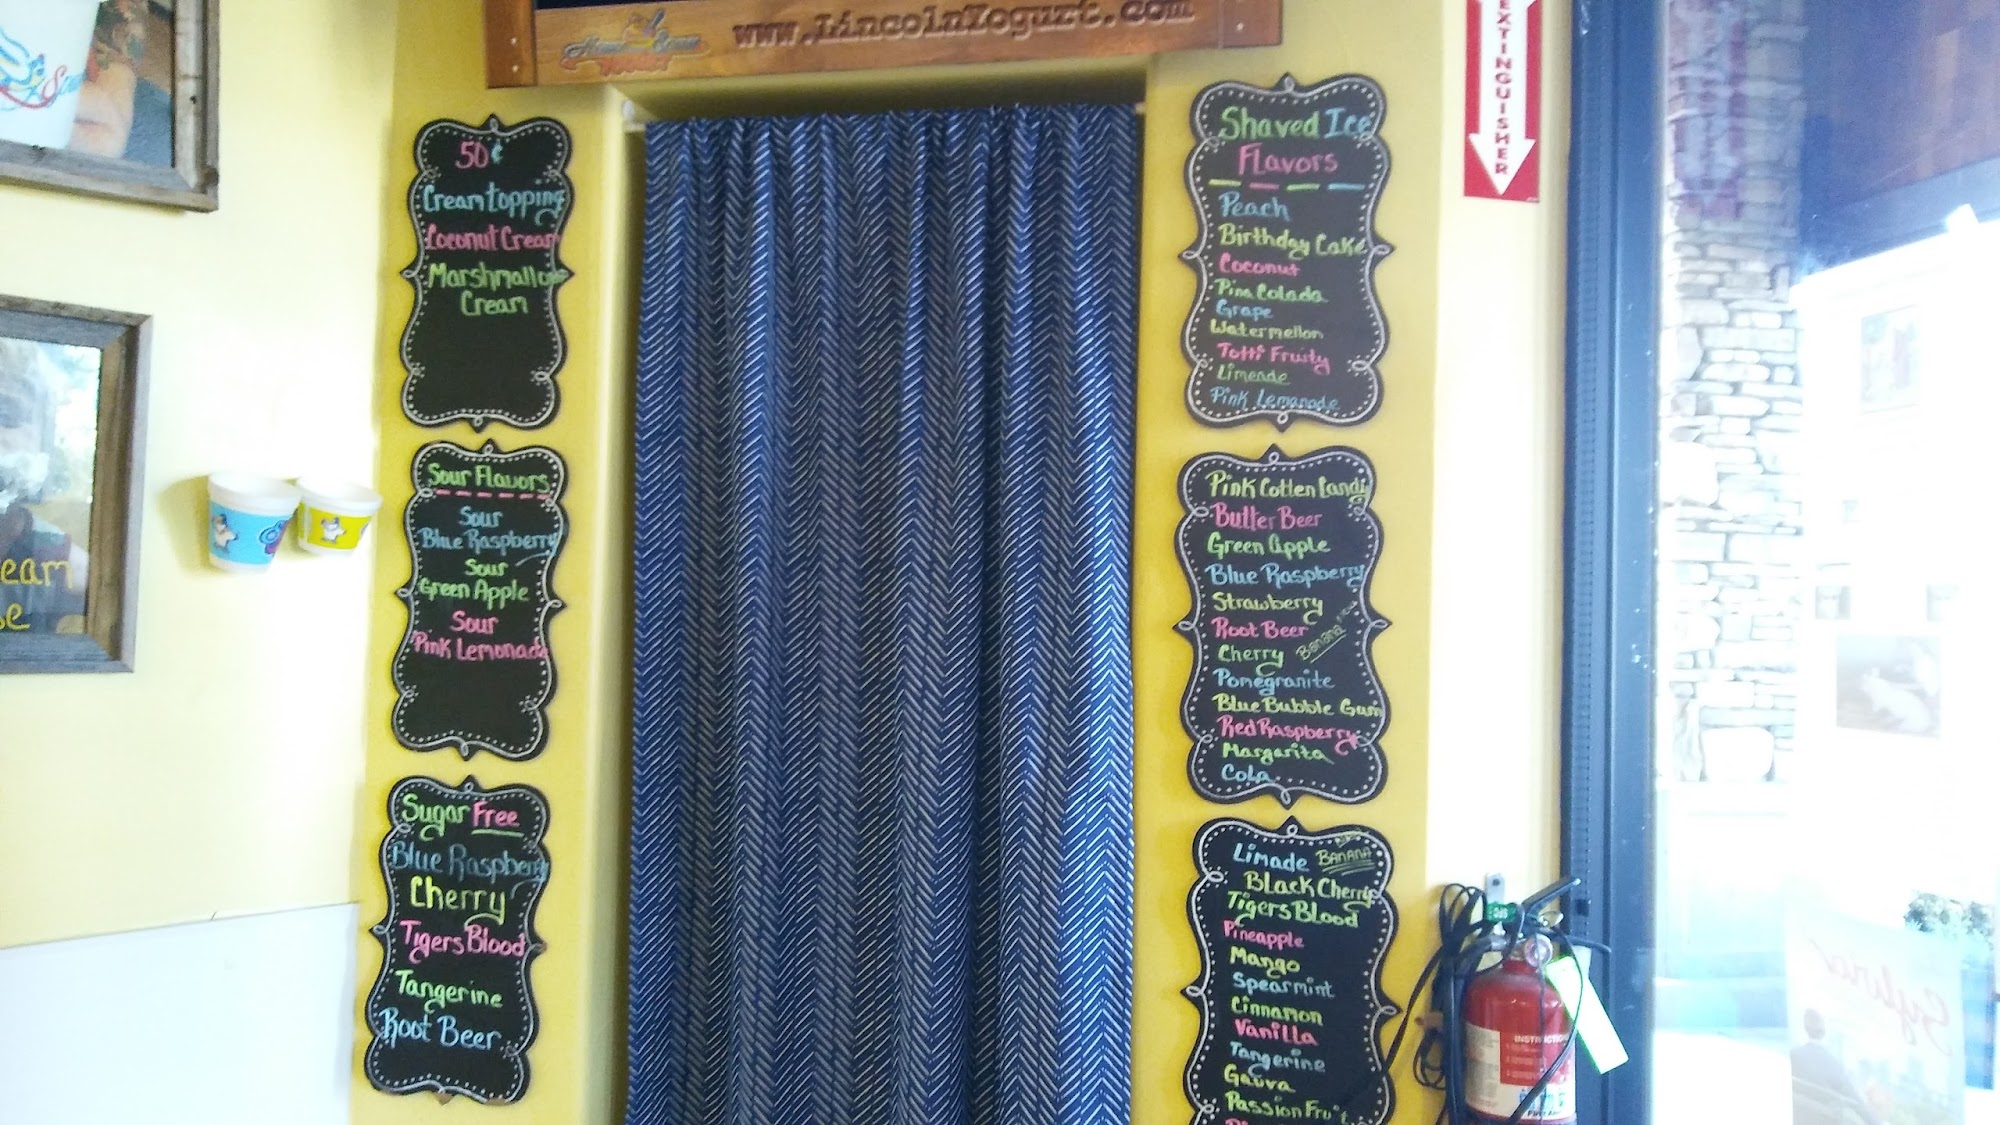 www.LincolnYogurt.com
EXTINGUISHER
50¢
Cream topping
Coconut Cream
Marshmallow
Cream
Sour Flavors
Sour
Blue Raspberry
Sour
Green Apple
Sour
Pink Lemonade
Sugar Free
Blue Raspberry
Cherry
Tigers Blood
Tangerine
Root Beer
Shaved Ice
Flavors
Peach
Birthday Cake
Coconut
Pina Colada
Grape
Watermellon
Totti Fruity
Limeade
Pink Lemonade
Pink Cotten Candy
Butter Beer
Green Apple
Blue Raspberry
Strawberry
Root Beer
Banana
Cherry
Pomegranite
Blue Bubble Gum
Red Raspberry
Margarita
Cola
Limade BANANA
Black Cherry
Tigers Blood
Pineapple
Mango
Spearmint
Cinnamon
Vanilla
Tangerine
Gauva
Passion Fruit
eam
INSTRUCTIONS